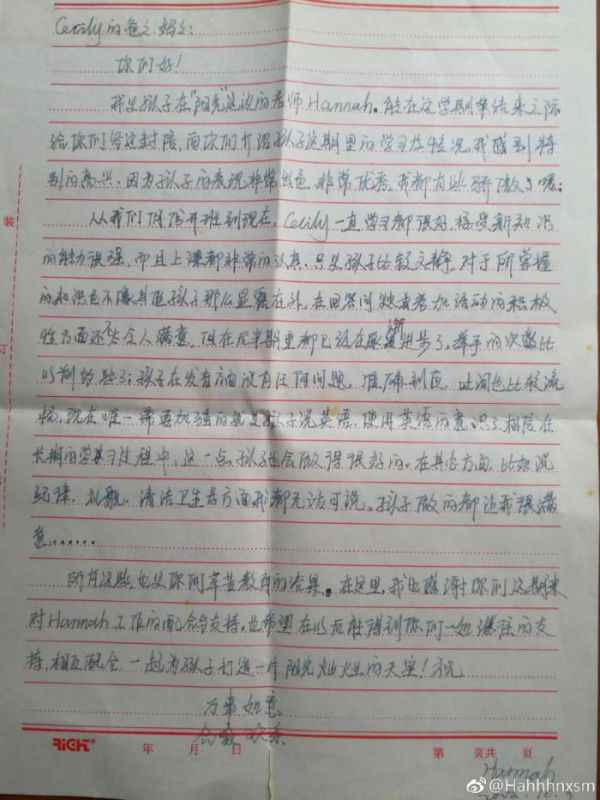 Cecily的爸爸妈妈:
你们好!
我是孩子在"阳光"这边的老师Hannah。能在这学期末结束之际
给你们写这封信,向你们介绍孩子这期里的学习及情况,我感到特
别的高兴,因为孩子的表现非常出色,非常优秀,我都有些骄傲了嘿;
从我们阳光开班到现在,Cecily一直学习都很好,接受新知识
的能力很强,而且上课都非常的认真,只是孩子比较文静,对于所掌握
的知识也不像其他孩子那么显露在外,在回答问题参加活动的积极
性方面还不令人满意,但在后半期里都已经在逐渐进步了,举手的次数比
以前多些了;孩子在发音方面没有任何问题,准确到位,对词也比较流
畅,现在唯一需要加强的就是孩子说英语,使用英语的意识了相信在
长期的学习过程中,这一点,孩子也会做得很好的,在其它方面,比如说
纪律,礼貌,清洁卫生各方面我都无话可说,孩子做的都让我很满
意......
所有这些,也是你们辛苦教育的结果。在这里,我也感谢你们这期来
对Hannah工作的配合与支持,也希望在以后能得到你们一如既往的支
持,相互配合,一起为孩子打造一个阳光灿烂的天空!祝
万事如意
合家欢乐
Hannah
装
RICH
年 月 日
第 页共 页
@Hahhhnxsm